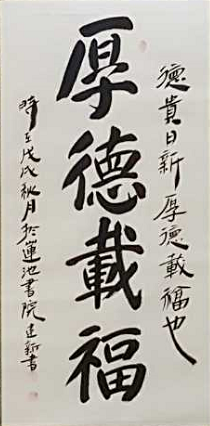 德貴日新厚德載福也
厚德載福
時在戊戌秋月於蓮池書院建新書